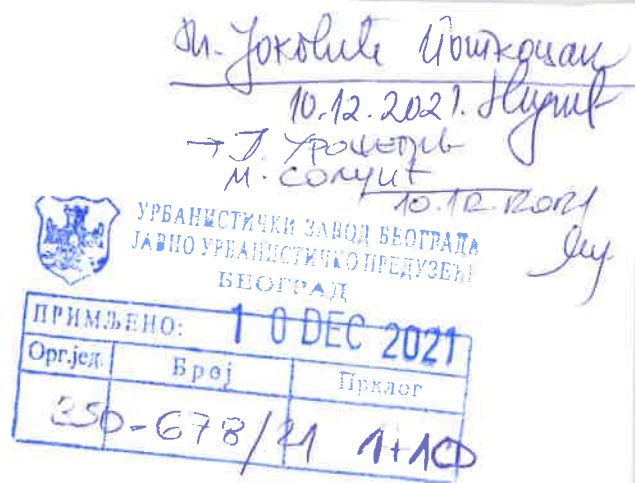 М. Јоковић
10.12.2021.
→
М.
10.12.2021
УРБАНИСТИЧКИ ЗАВОД БЕОГРАДА
ЈАВНО УРБАНИСТИЧКО ПРЕДУЗЕЋЕ
БЕОГРАД
ПРИМЉЕНО: 10 DEC 2021
Орг.јед. Број Прилог
350-678/21 1+1CD